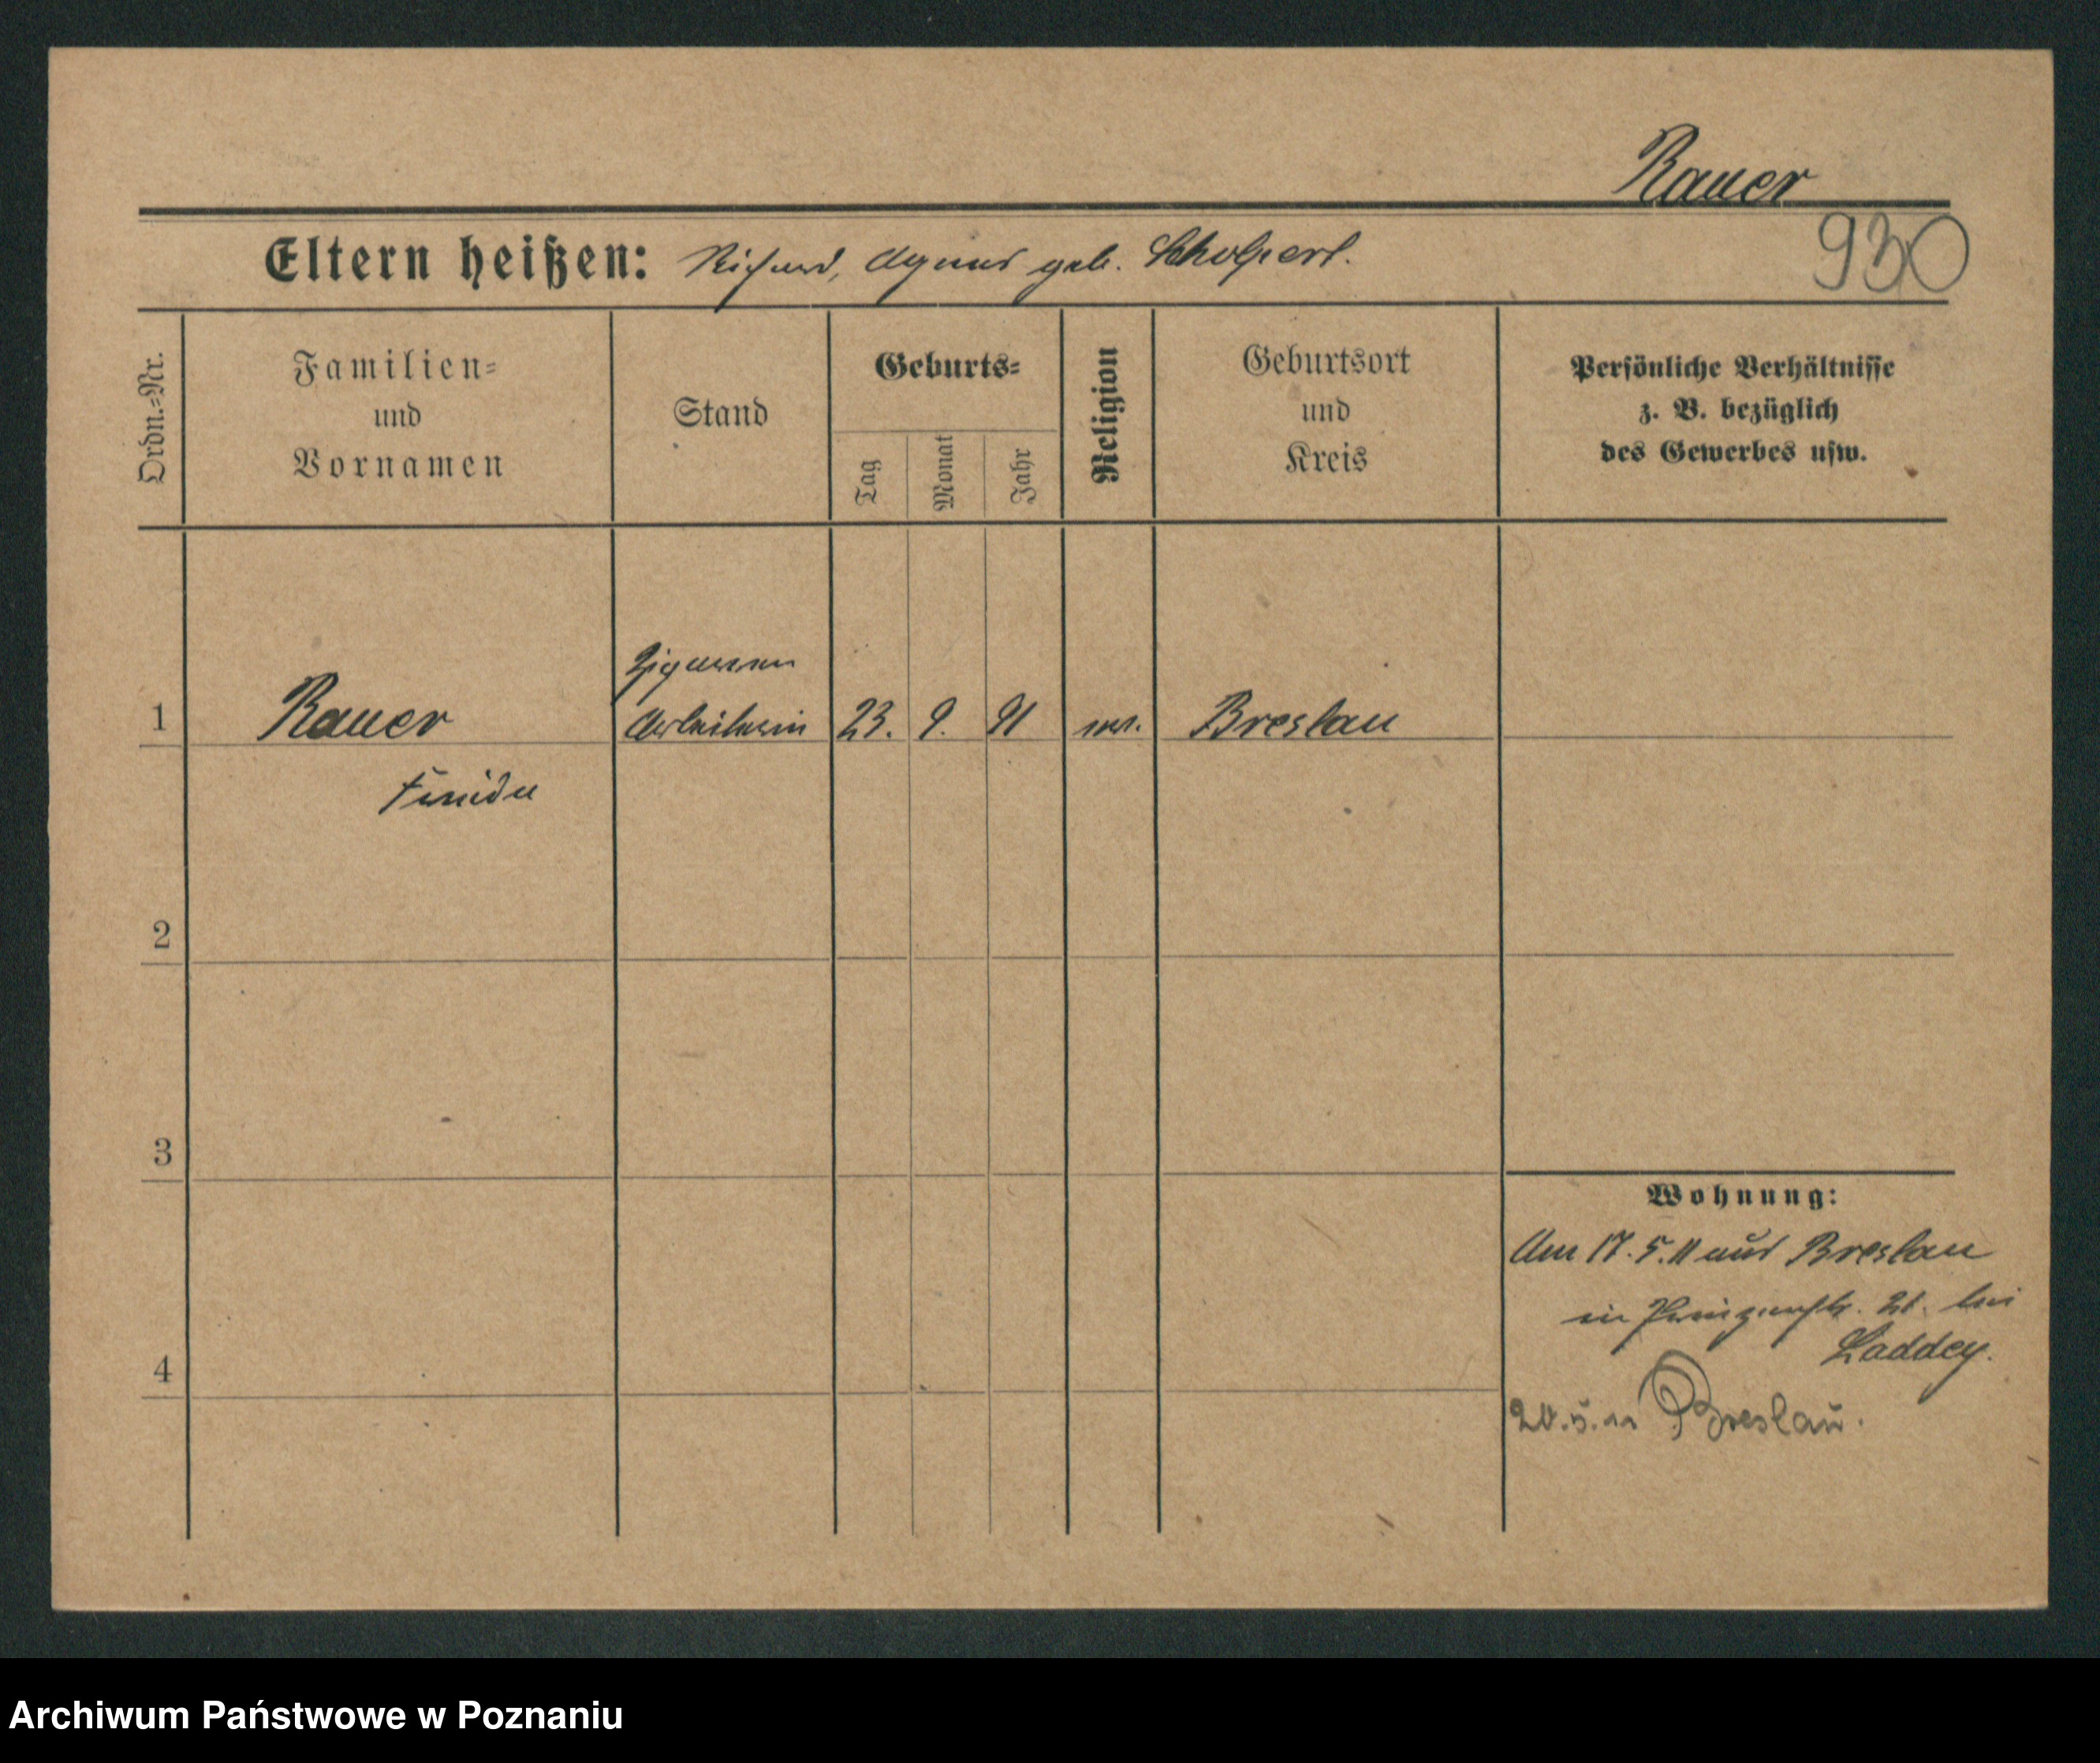 Rauer
930
Eltern heißen: Richard, Agnes geb. Scholpert.
Ordn.-Nr.
Familien-
und
Vornamen
Stand
Geburts-
Tag
Monat
Jahr
Religion
Geburtsort
und
Kreis
Persönliche Verhältnisse
z. B. bezüglich
des Gewerbes usw.
Zigarren
1 Rauer Arbeiterin 23. 9. 91 Breslau
Frieda
2
3
Wohnung:
Am 17.5.11 aus Breslau
in Prinzenstr. 21. bei
Laddey.
4
20.5.11 Breslau.
Archiwum Państwowe w Poznaniu